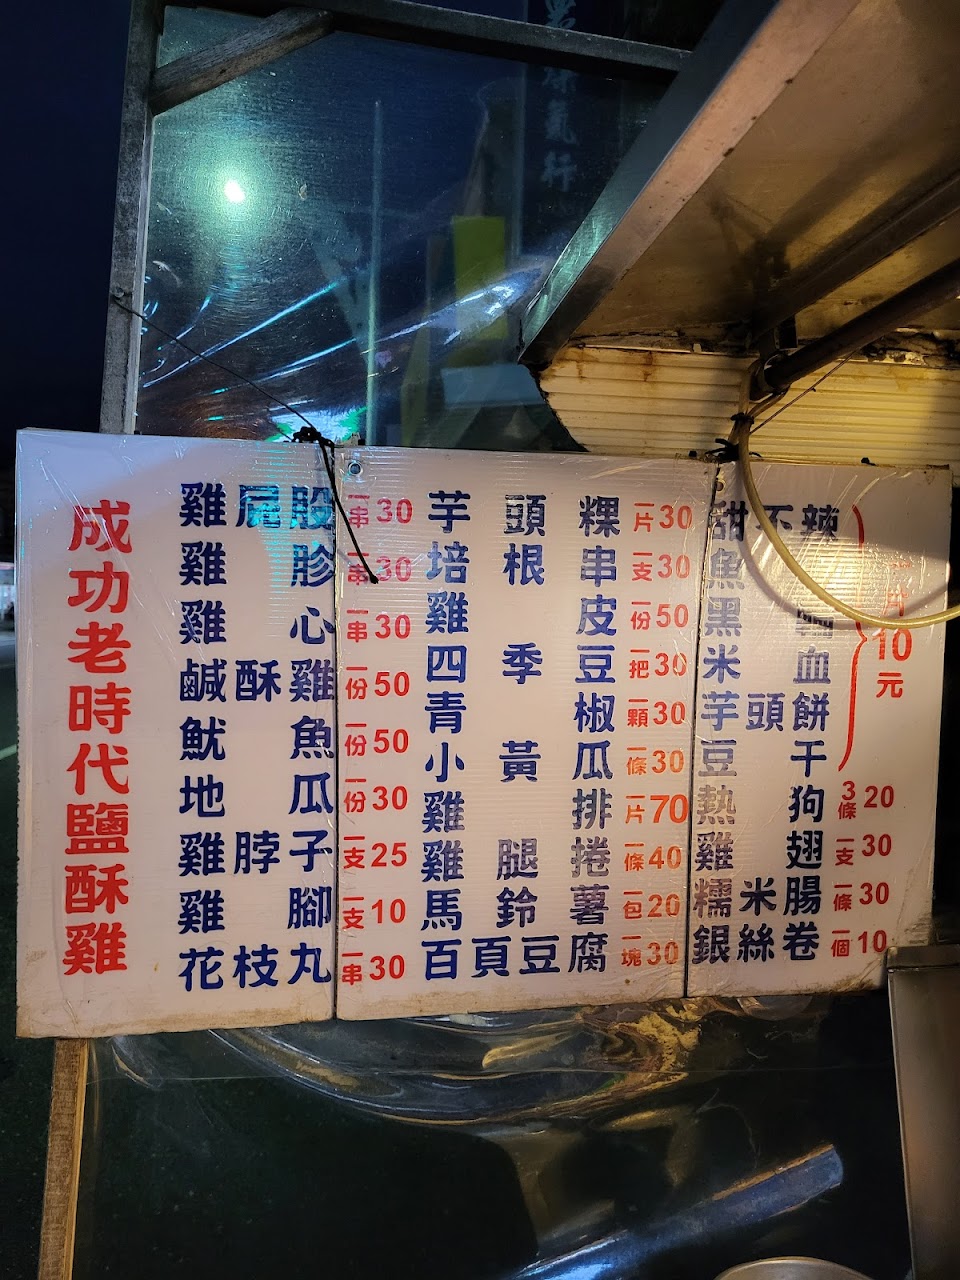 成功老時代鹽酥雞
雞屁股 一串30
雞胗 一串30
雞心 一串30
鹹酥雞 一份50
魷魚 一份50
地瓜 一份30
雞脖子 一支25
雞腳 一支10
花枝丸 一串30
芋頭粿 一片30
培根串 一支30
雞皮 一份50
四季豆 一把30
青椒 一顆30
小黃瓜 一條30
雞排 一片70
雞腿捲 一條40
馬鈴薯 一包20
百頁豆腐 一塊30
甜不辣
魚
黑輪
米血
芋頭餅
豆干
一片10元
熱狗 3條20
雞翅 一支30
糯米腸 一條30
銀絲卷 一個10